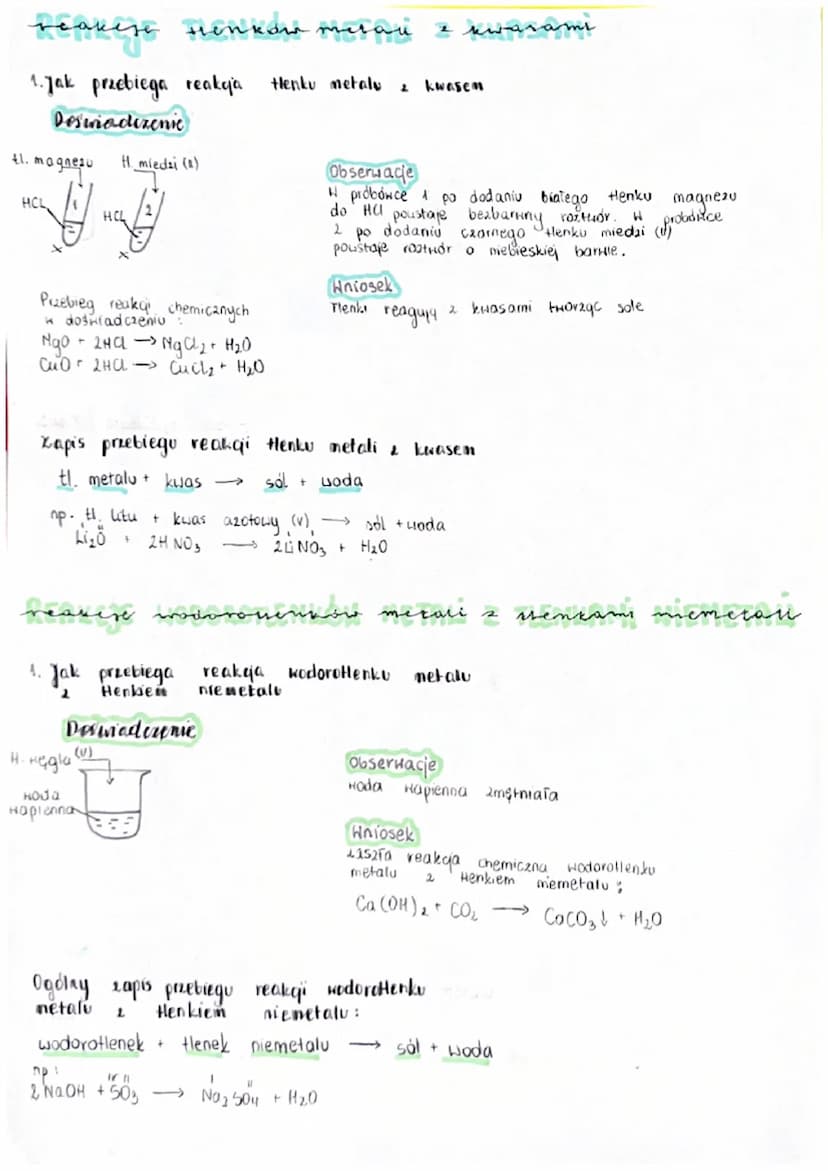 reakcje tlenków metali z kwasami
1. Jak przebiega reakcja tlenku metalu z kwasem
Doświadczenie
tl. magnezu tl. miedzi (II)
HCL 1 HCL 2
Obserwacje
W próbówce 1 po dodaniu białego tlenku magnezu
do HCl powstaje bezbarwny roztwór. W probówce
2 po dodaniu czarnego tlenku miedzi (II)
powstaje roztwór o niebieskiej barwie.
Wniosek
Tlenki reagują z kwasami tworząc sole
Przebieg reakcji chemicznych
w doświadczeniu :
MgO + 2HCl → MgCl₂ + H₂O
CuO + 2HCl → CuCl₂ + H₂O
Zapis przebiegu reakcji tlenku metali z kwasem
tl. metalu + kwas → sól + woda
np. tl. litu + kwas azotowy (V) → sól + woda
Li₂O + 2HNO₃ → 2LiNO₃ + H₂O
reakcje wodorotlenków metali z tlenkami niemetali
1. Jak przebiega reakcja wodorotlenku metalu
z tlenkiem niemetalu
Doświadczenie
tl. węgla (IV)
woda
wapienna
Obserwacje
woda wapienna zmętniała
Wniosek
zaszła reakcja chemiczna wodorotlenku
metalu z tlenkiem niemetalu :
Ca(OH)₂ + CO₂ → CaCO₃↓ + H₂O
Ogólny zapis przebiegu reakcji wodorotlenku
metalu z tlenkiem niemetalu :
wodorotlenek + tlenek niemetalu → sól + woda
np :
2NaOH + SO₃ → Na₂SO₄ + H₂O